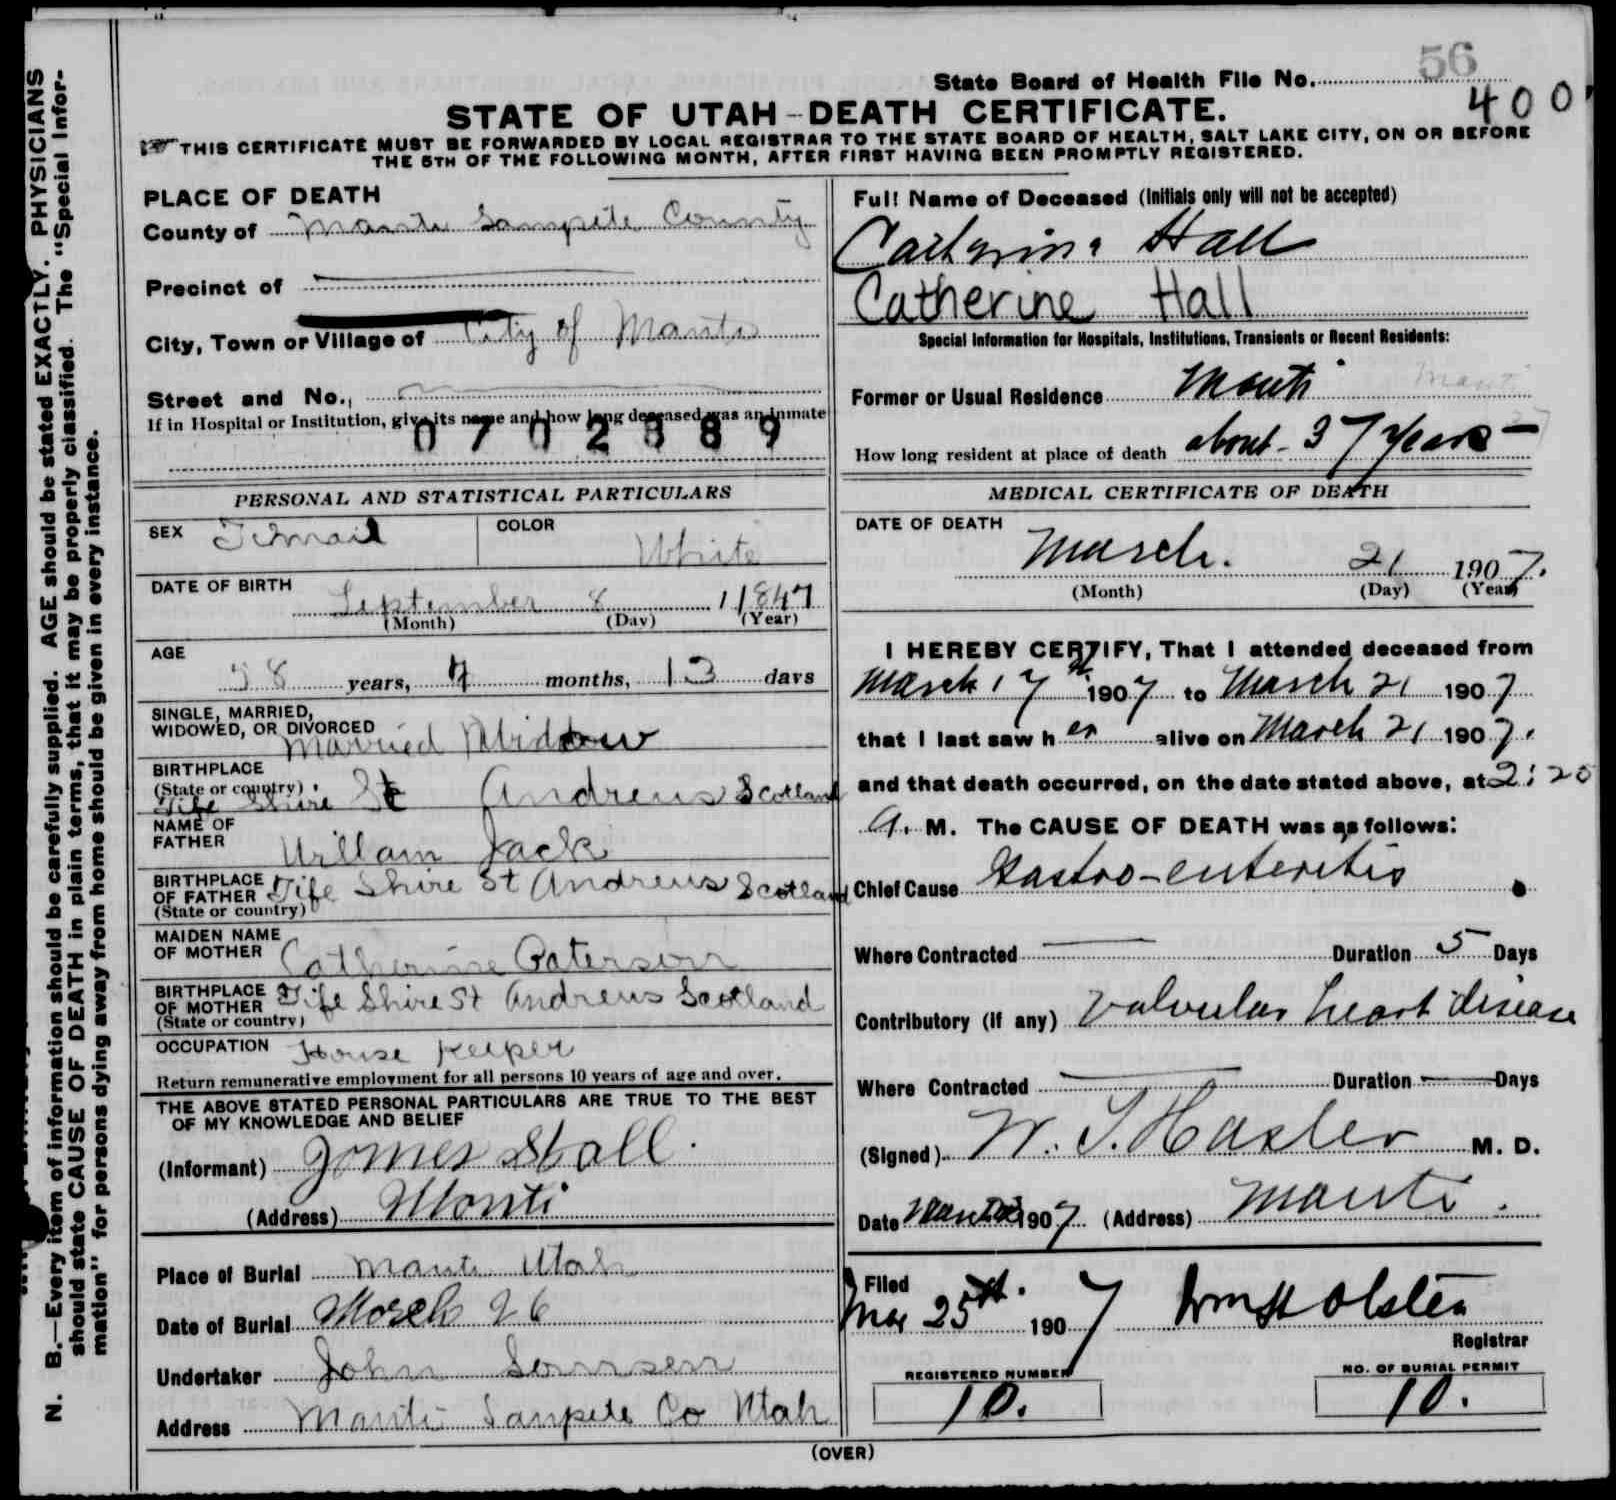 N. B.—Every item of information should be carefully supplied. AGE should be stated EXACTLY. PHYSICIANS
should state CAUSE OF DEATH in plain terms, that it may be properly classified. The "Special Infor-
mation" for persons dying away from home should be given in every instance.
56
State Board of Health File No.
400
STATE OF UTAH—DEATH CERTIFICATE.
THIS CERTIFICATE MUST BE FORWARDED BY LOCAL REGISTRAR TO THE STATE BOARD OF HEALTH, SALT LAKE CITY, ON OR BEFORE
THE 5TH OF THE FOLLOWING MONTH, AFTER FIRST HAVING BEEN PROMPTLY REGISTERED.
PLACE OF DEATH
County of Manti Sampete County
Precinct of
City, Town or Village of City of Manti
Street and No.,
If in Hospital or Institution, give its name and how long deceased was an inmate
0702389
PERSONAL AND STATISTICAL PARTICULARS
SEX Femail COLOR White
DATE OF BIRTH
September 8 1847
(Month) (Day) (Year)
AGE
58 years, months, 13 days
SINGLE, MARRIED,
WIDOWED, OR DIVORCED
Married Widow
BIRTHPLACE
(State or country)
Fife Shire St Andrews Scotland
NAME OF
FATHER
Willam Jack
BIRTHPLACE
OF FATHER
(State or country)
Fife Shire St Andrews Scotland
MAIDEN NAME
OF MOTHER
Catherine Paterson
BIRTHPLACE
OF MOTHER
(State or country)
Fife Shire St Andrews Scotland
OCCUPATION House Keeper
Return remunerative employment for all persons 10 years of age and over.
THE ABOVE STATED PERSONAL PARTICULARS ARE TRUE TO THE BEST
OF MY KNOWLEDGE AND BELIEF
(Informant) James Hall
(Address) Manti
Place of Burial Manti Utah
Date of Burial March 26
Undertaker John
Address Manti Sanpete Co Utah
Full Name of Deceased (Initials only will not be accepted)
Catherine Hall
Catherine Hall
Special Information for Hospitals, Institutions, Transients or Recent Residents:
Former or Usual Residence Manti Manti
How long resident at place of death about 37 years
MEDICAL CERTIFICATE OF DEATH
DATE OF DEATH
March. 21 1907.
(Month) (Day) (Year)
I HEREBY CERTIFY, That I attended deceased from
March 17th 1907 to March 21 1907
that I last saw her alive on March 21 1907.
and that death occurred, on the date stated above, at 2:20
A. M. The CAUSE OF DEATH was as follows:
Chief Cause Gastro-enteritis
Where Contracted Duration 5 Days
Contributory (If any) Valvular heart disease
Where Contracted Duration Days
(Signed) W. S. Hasler M. D.
Date 1907 (Address) Manti.
Filed
Mar 25th. 1907 Wm H Olsten
Registrar
REGISTERED NUMBER
10.
NO. OF BURIAL PERMIT
10.
(OVER)